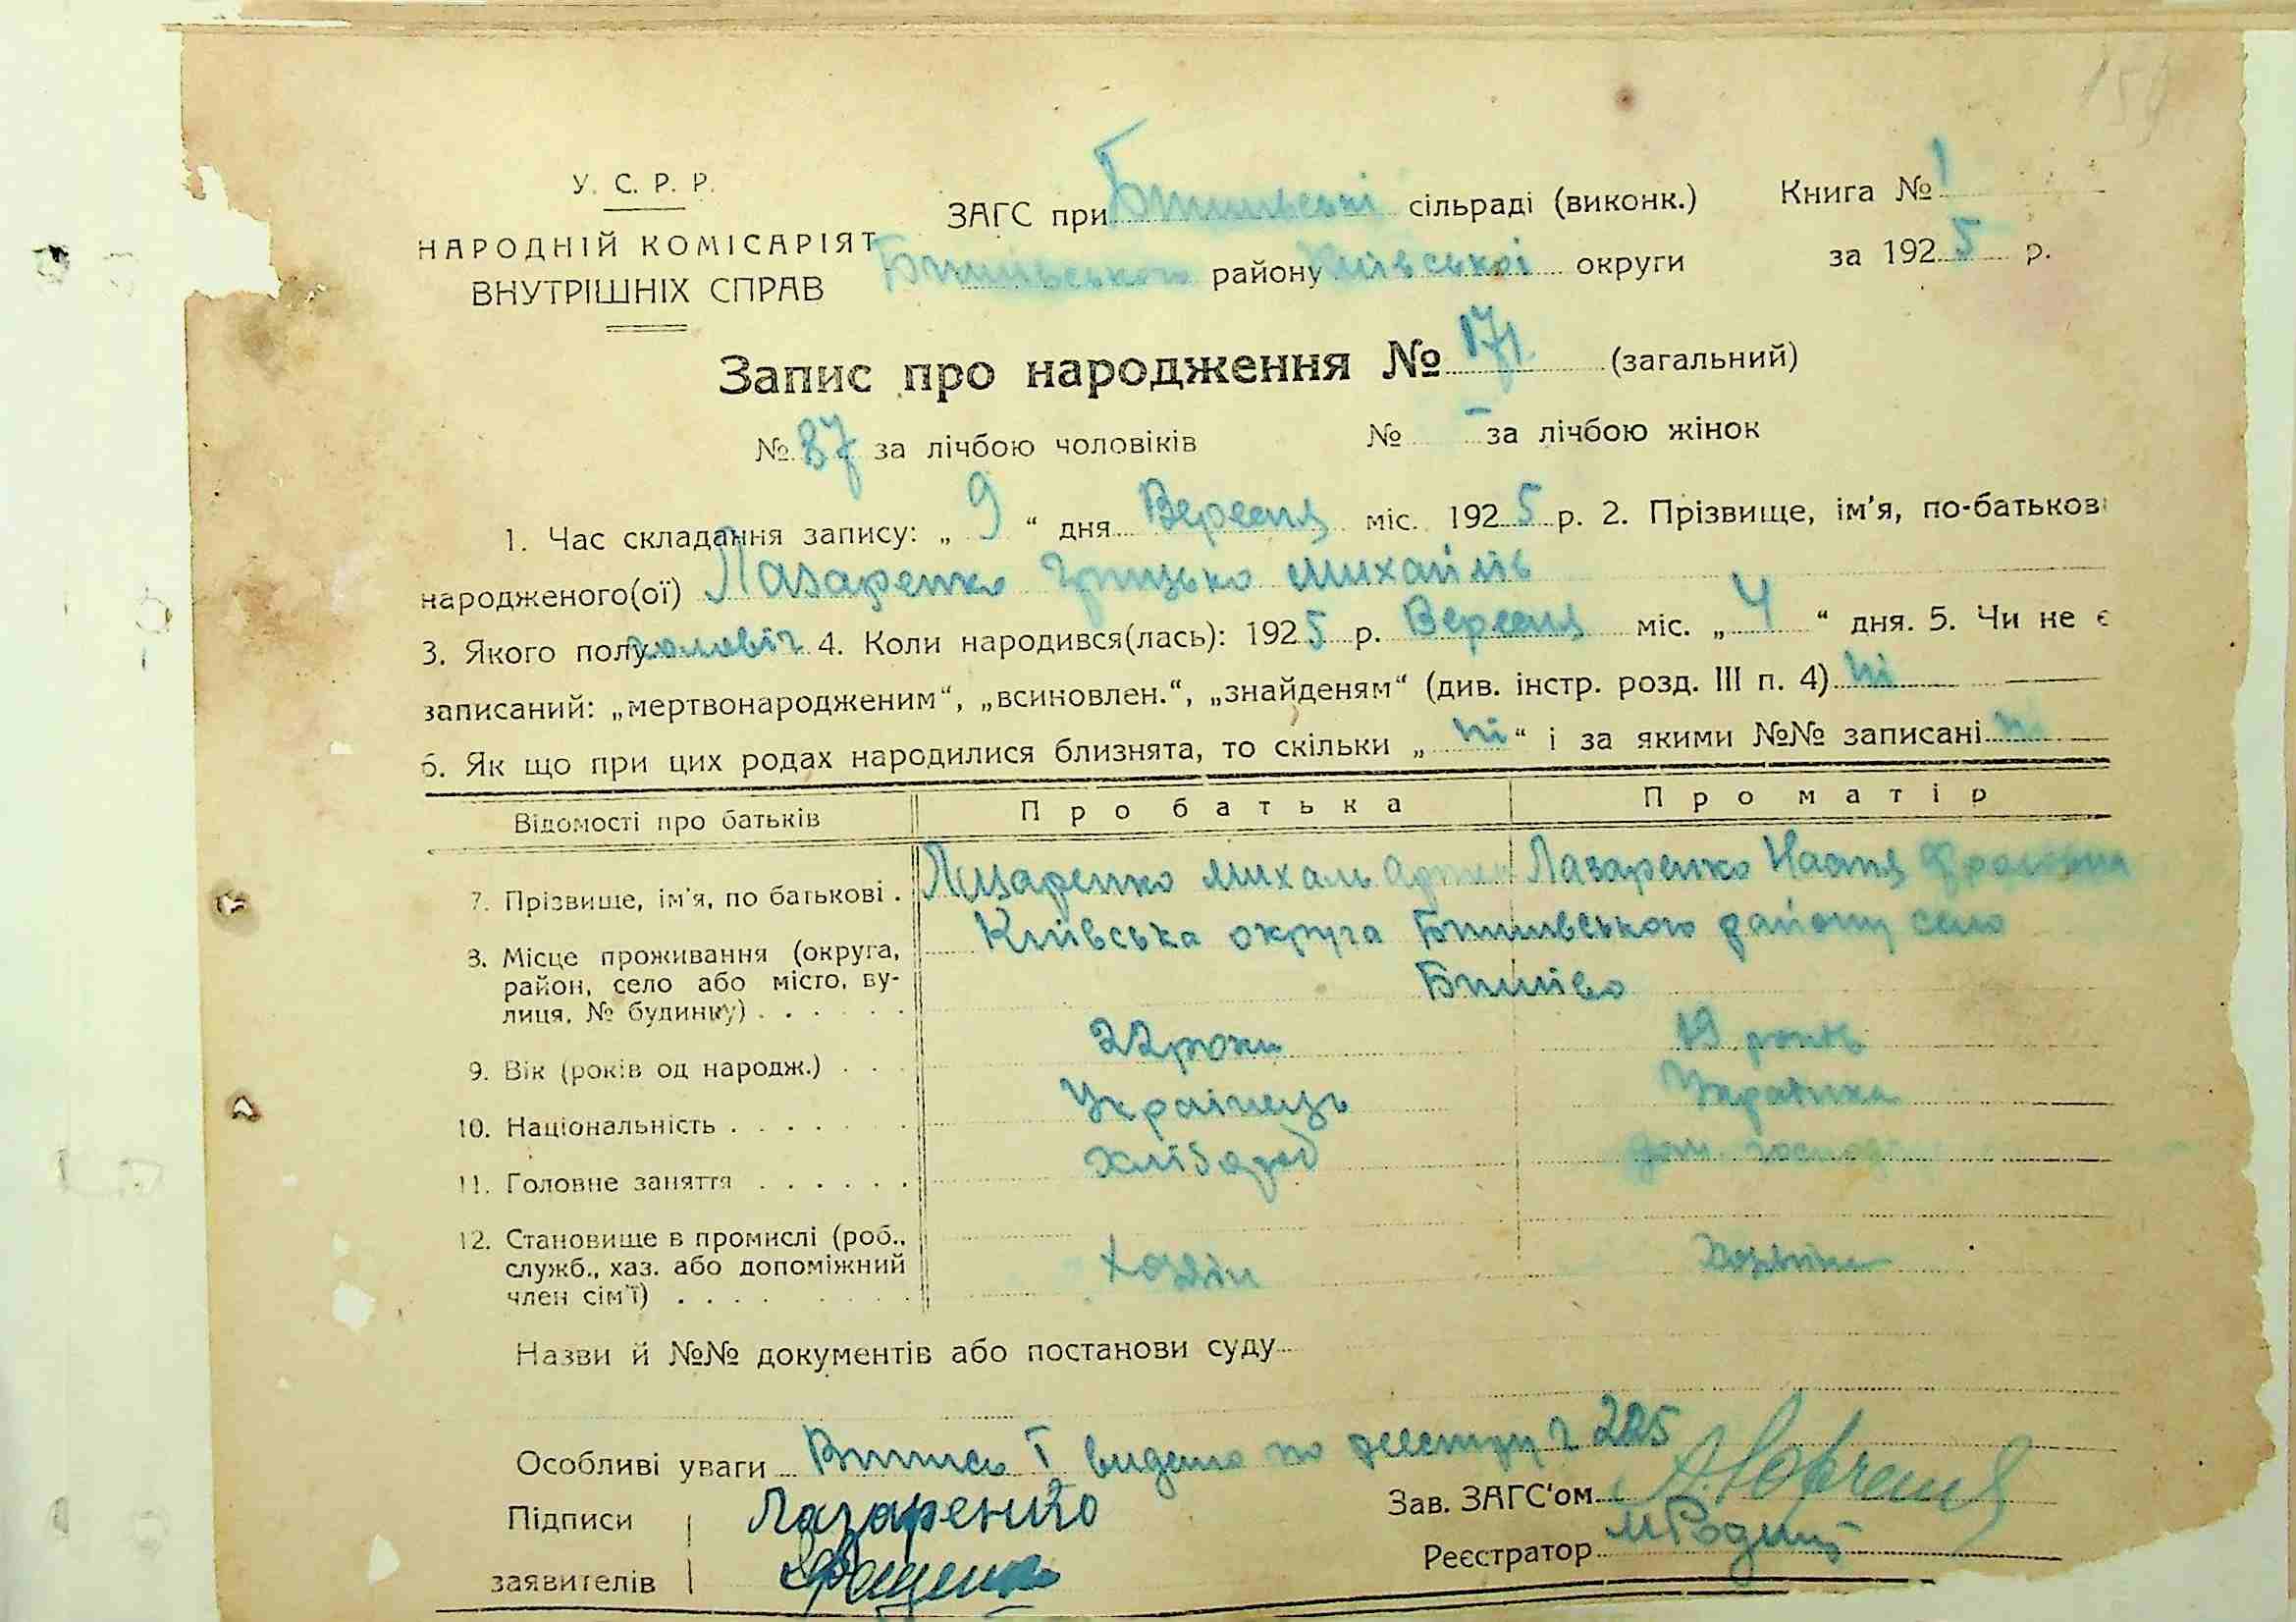 159
У. С. Р. Р.
НАРОДНІЙ КОМІСАРІЯТ
ВНУТРІШНІХ СПРАВ
ЗАГС при сільраді (виконк.)
району Київської округи
Книга № 1
за 1925 р.
Запис про народження № 171 (загальний)
№ 87 за лічбою чоловіків № – за лічбою жінок
1. Час складання запису: „ 9 “ дня Вересня міс. 1925 р. 2. Прізвище, ім'я, по-батькові
народженого(ої) Лазаренко Грицько Михайлів
3. Якого полу чоловіч 4. Коли народився(лась): 1925 р. Вересня міс. „ 4 “ дня. 5. Чи не є
записаний: „мертвонародженим“, „всиновлен.“, „знайденям“ (див. інстр. розд. III п. 4) ні
6. Як що при цих родах народилися близнята, то скільки „ ні “ і за якими №№ записані ні
Відомості про батьків Про батька Про матір
7. Прізвище, ім'я, по батькові . Лазаренко Михаль Лазаренко Настя
8. Місце проживання (округа, Київська округа району село
район, село або місто, ву-
лиця, № будинку) . . . . . .
9. Вік (років од народж.) . . . 22 роки 19 років
10. Національність . . . . . . . Українець Українка
11. Головне заняття . . . . . . Хлібороб дом. господ
12. Становище в промислі (роб.,
служб., хаз. або допоміжний Хозяін
член сім'ї) . . . . . . . . .
Назви й №№ документів або постанови суду
Особливі уваги Випись I видана по реєстру 225
Підписи Лазаренко Зав. ЗАГС'ом
заявителів Реєстратор